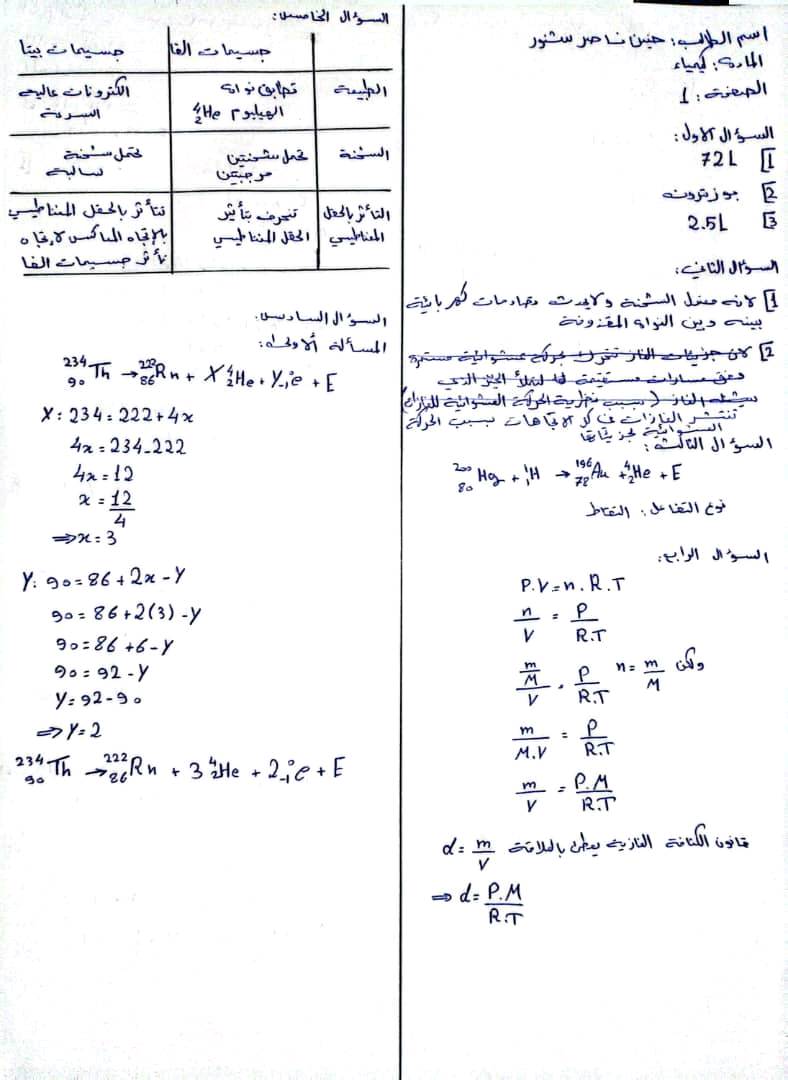 اسم الطالب: حنين ناصر شنور
المادة: كيمياء
الصفحة: 1
السؤال الاول:
1] 72L
2] بوزيترون
3] 2.5L
السؤال الثاني:
1] لانه معتدل الشحنة ولايحدث تصادمات كهربائية
بينه وبين النواة المقذوفة
2] لان جزيئات الغاز تتحرك بحركة عشوائية مستمرة
وفق مسارات مستقيمة لذا تملأ الحيز الذي
يشغله الغاز (بسبب نظرية الحركة العشوائية للغازات)
تنتشر الغازات في كل الاتجاهات بسبب الحركة
العشوائية لجزيئاتها
السؤال الثالث:
²⁰⁰₈₀Hg + ¹₁H → ¹⁹⁶₇₈Au + ⁴₂He + E
نوع التفاعل: التقاط
السؤال الرابع:
P.V = n.R.T
n/V = P/R.T
(m/M)/V = P/R.T n = m/M ولكن
m/M.V = P/R.T
m/V = P.M/R.T
قانون الكثافة الغازية يعطى بالعلاقة d = m/V
⇒ d = P.M/R.T
السؤال الخامس:
جسيمات الفا جسيمات بيتا
الطبيعة تطابق نواة الهيليوم ⁴₂He الكترونات عالية السرعة
الشحنة تحمل شحنتين موجبتين تحمل شحنة سالبة
التأثر بالحقل المغناطيسي تنحرف بتأثير الحقل المغناطيسي تتأثر بالحقل المغناطيسي بالإتجاه المعاكس لاتجاه تأثر جسيمات الفا
السؤال السادس:
المسألة الاولى:
²³⁴₉₀Th → ²²²₈₆Rn + X⁴₂He + Y₋₁⁰e + E
X: 234 = 222 + 4x
4x = 234 - 222
4x = 12
x = 12/4
⇒ x = 3
Y: 90 = 86 + 2x - Y
90 = 86 + 2(3) - Y
90 = 86 + 6 - Y
90 = 92 - Y
Y = 92 - 90
⇒ Y = 2
²³⁴₉₀Th → ²²²₈₆Rn + 3⁴₂He + 2₋₁⁰e + E